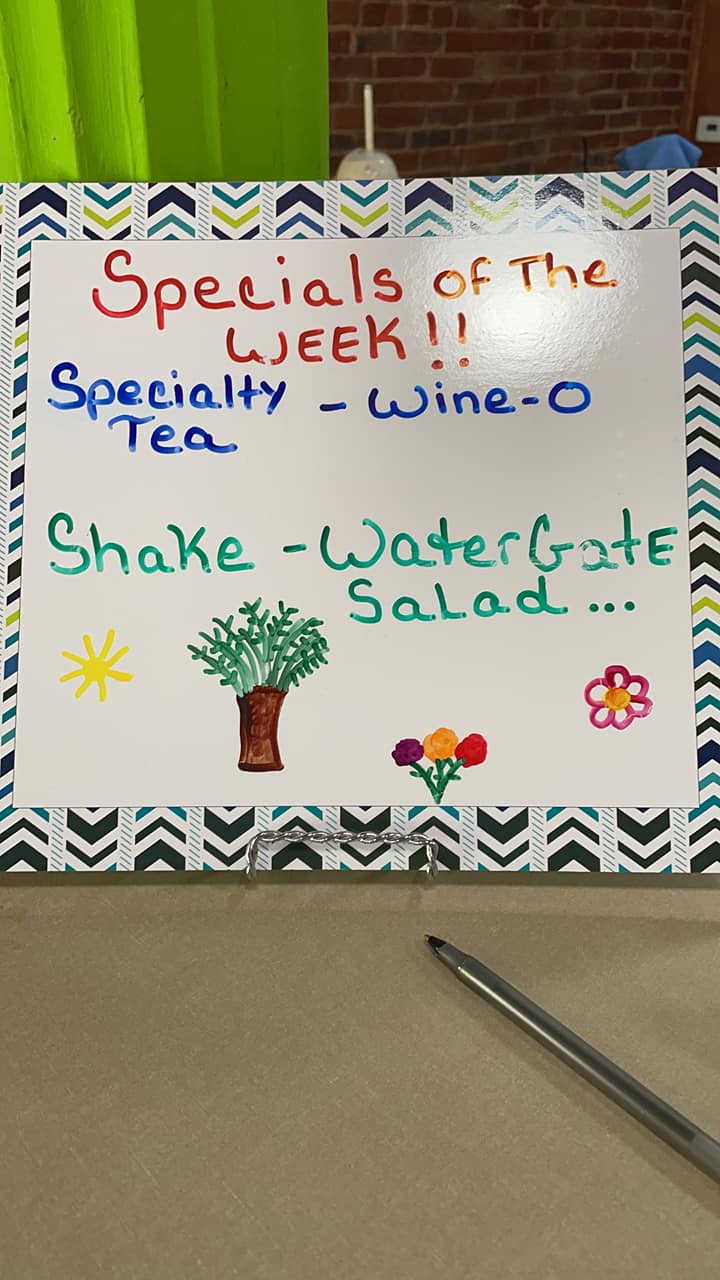 Specials of The
WEEK!!
Specialty - Wine-O
Tea
Shake - WaterGatE
SaLad...